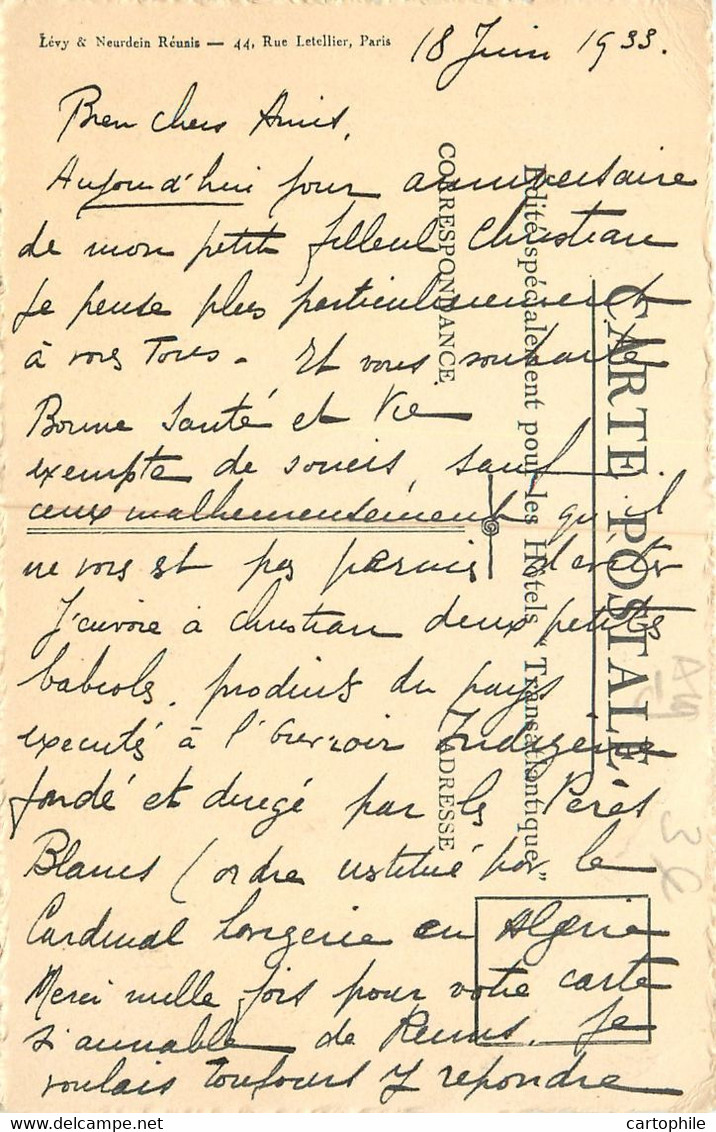 Lévy & Neurdein Réunis — 44, Rue Letellier, Paris
18 Juin 1933.
Bien chers Amis,
Aujourd'hui jour anniversaire
de mon petit filleul Christian
je pense plus particulièrement
à vous Tous - Et vous souhaite
Bonne Santé et Vie
exempte de soucis, sauf
ceux malheureusement qu'il
ne vous est pas permis d'eviter
J'envoie à Christian deux petites
babioles, produits du pays
executés à l'ouvroir Indigène
fondé et dirigé par les Pères
Blancs (ordre institué par le
Cardinal Lavigerie en Algerie
Merci mille fois pour votre carte
si aimable de Reims. Je
voulais toujours y repondre
CARTE POSTALE
Edité spécialement pour les Hôtels "Transatlantique"
CORRESPONDANCE
ADRESSE
Alg
3€
cartophile.com